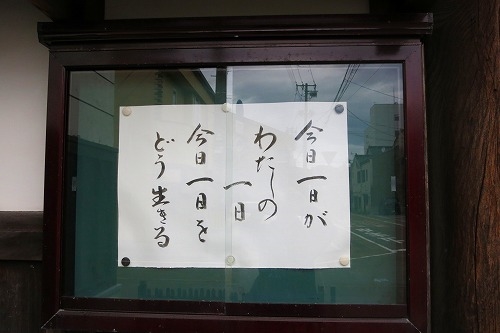 今日一日が
わたしの
一日
今日一日を
どう生きる